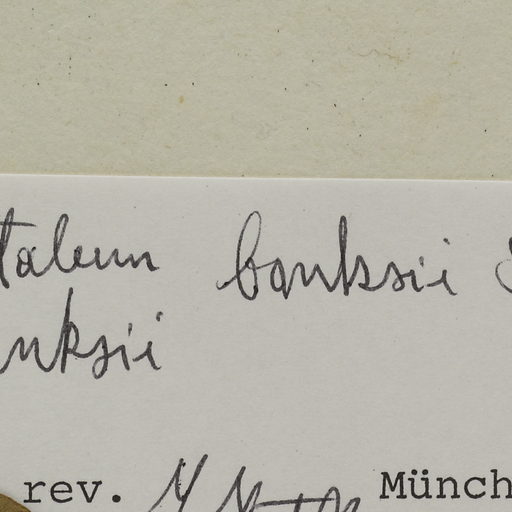 taleum banksii
nksii
rev. Münch